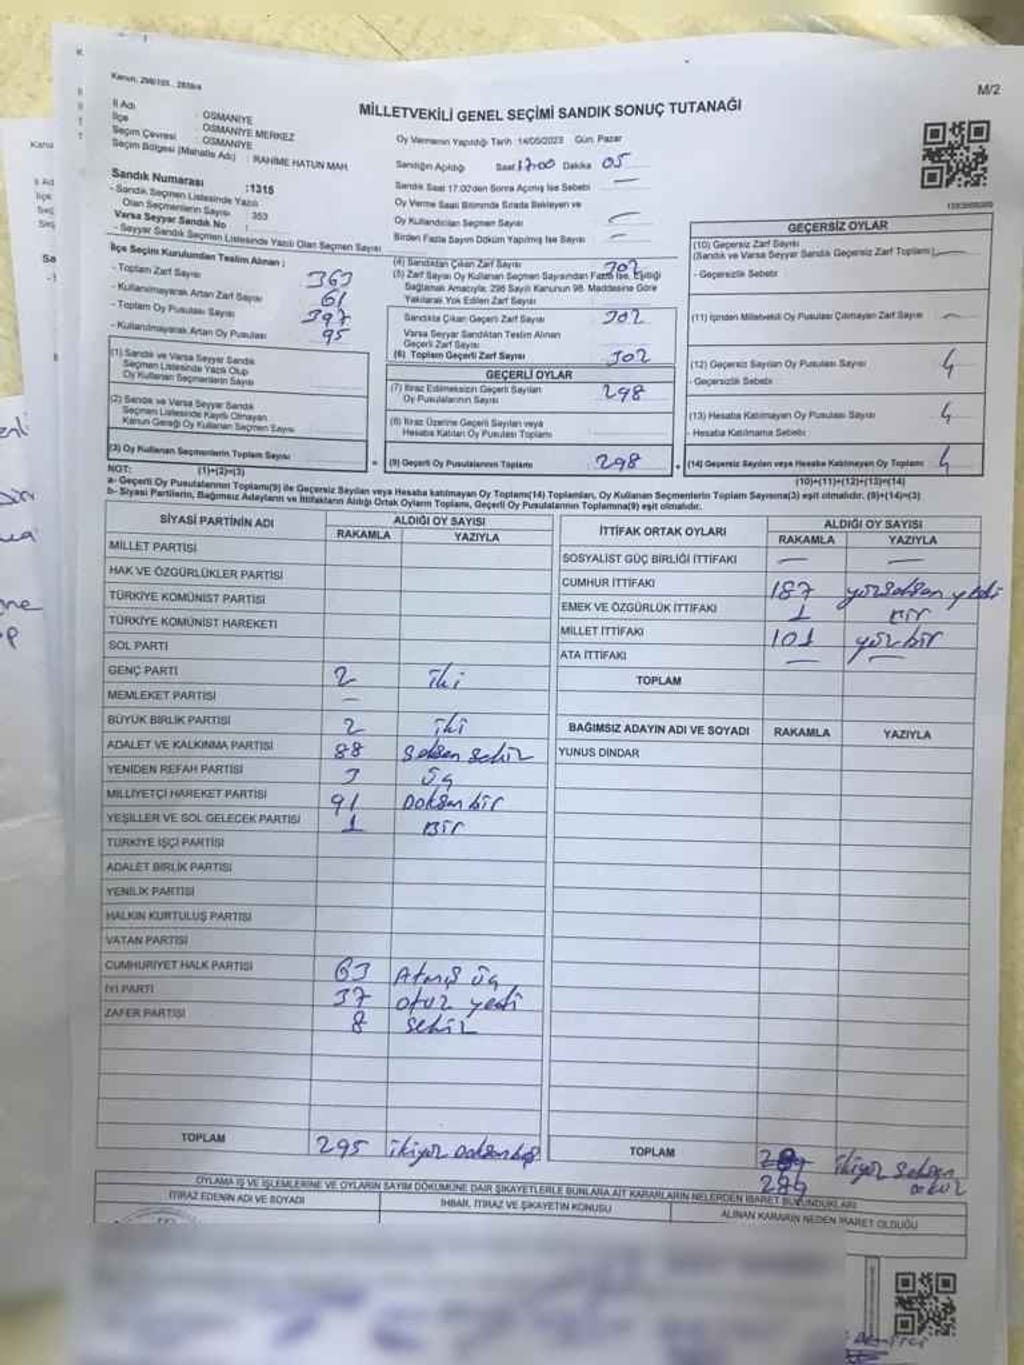 Kanun: 298/105 , 2839/
M/2
MİLLETVEKİLİ GENEL SEÇİMİ SANDIK SONUÇ TUTANAĞI
İl Adı : OSMANİYE
İlçe : OSMANİYE MERKEZ
Seçim Çevresi : OSMANİYE
Seçim Bölgesi (Mahalle Adı) : RAHİME HATUN MAH.
Oy Vermenin Yapıldığı Tarih :14/05/2023 Gün: Pazar
Sandığın Açıldığı Saat 17:00 Dakika 05
Sandık Saat 17:00'den Sonra Açılmış İse Sebebi —
Oy Verme Saati Bitiminde Sırada Bekleyen ve
Oy Kullandırılan Seçmen Sayısı —
Birden Fazla Sayım Döküm Yapılmış İse Sayısı —
Sandık Numarası :1315
- Sandık Seçmen Listesinde Yazılı
Olan Seçmenlerin Sayısı : 353
Varsa Seyyar Sandık No :
- Seyyar Sandık Seçmen Listesinde Yazılı Olan Seçmen Sayısı
İlçe Seçim Kurulundan Teslim Alınan :
- Toplam Zarf Sayısı 363
- Kullanılmayarak Artan Zarf Sayısı 61
- Toplam Oy Pusulası Sayısı 397
- Kullanılmayarak Artan Oy Pusulası 95
(1) Sandık ve Varsa Seyyar Sandık
Seçmen Listesinde Yazılı Olup
Oy Kullanan Seçmenlerin Sayısı
(2) Sandık ve Varsa Seyyar Sandık
Seçmen Listesinde Kayıtlı Olmayan
Kanun Gereği Oy Kullanan Seçmen Sayısı
(3) Oy Kullanan Seçmenlerin Toplam Sayısı
(1)+(2)=(3)
(4) Sandıktan Çıkan Zarf Sayısı 302
(5) Zarf Sayısı Oy Kullanan Seçmen Sayısından Fazla İse, Eşitliği
Sağlamak Amacıyla, 298 Sayılı Kanunun 98. Maddesine Göre
Yakılarak Yok Edilen Zarf Sayısı
Sandıkta Çıkan Geçerli Zarf Sayısı 302
Varsa Seyyar Sandıktan Teslim Alınan
Geçerli Zarf Sayısı
(6) Toplam Geçerli Zarf Sayısı 302
GEÇERLİ OYLAR
(7) İtiraz Edilmeksizin Geçerli Sayılan
Oy Pusulalarının Sayısı 298
(8) İtiraz Üzerine Geçerli Sayılan veya
Hesaba Katılan Oy Pusulası Toplamı
(9) Geçerli Oy Pusulalarının Toplamı 298
GEÇERSİZ OYLAR
(10) Geçersiz Zarf Sayısı
(Sandık ve Varsa Seyyar Sandık Geçersiz Zarf Toplamı) —
- Geçersizlik Sebebi
(11) İçinden Milletvekili Oy Pusulası Çıkmayan Zarf Sayısı —
(12) Geçersiz Sayılan Oy Pusulası Sayısı 4
- Geçersizlik Sebebi
(13) Hesaba Katılmayan Oy Pusulası Sayısı 4
- Hesaba Katılmama Sebebi
(14) Geçersiz Sayılan veya Hesaba Katılmayan Oy Toplamı 4
(10)+(11)+(12)+(13)=(14)
NOT:
a- Geçerli Oy Pusulasının Toplamı(9) ile Geçersiz Sayılan veya Hesaba katılmayan Oy Toplamı(14) Toplamları, Oy Kullanan Seçmenlerin Toplam Sayısına(3) eşit olmalıdır. (9)+(14)=(3)
b- Siyasi Partilerin, Bağımsız Adayların ve İttifakların Aldığı Ortak Oyların Toplamı, Geçerli Oy Pusulalarının Toplamına(9) eşit olmalıdır.
SİYASİ PARTİNİN ADI ALDIĞI OY SAYISI
RAKAMLA YAZIYLA
MİLLET PARTİSİ
HAK VE ÖZGÜRLÜKLER PARTİSİ
TÜRKİYE KOMÜNİST PARTİSİ
TÜRKİYE KOMÜNİST HAREKETİ
SOL PARTİ
GENÇ PARTİ 2 iki
MEMLEKET PARTİSİ —
BÜYÜK BİRLİK PARTİSİ 2 iki
ADALET VE KALKINMA PARTİSİ 88 Seksen sekiz
YENİDEN REFAH PARTİSİ 3 üç
MİLLİYETÇİ HAREKET PARTİSİ 91 Doksan bir
YEŞİLLER VE SOL GELECEK PARTİSİ 1 Bir
TÜRKİYE İŞÇİ PARTİSİ
ADALET BİRLİK PARTİSİ
YENİLİK PARTİSİ
HALKIN KURTULUŞ PARTİSİ
VATAN PARTİSİ
CUMHURİYET HALK PARTİSİ 63 Atmış üç
İYİ PARTİ 37 otuz yedi
ZAFER PARTİSİ 8 sekiz
TOPLAM 295 ikiyüz doksan beş
İTTİFAK ORTAK OYLARI ALDIĞI OY SAYISI
RAKAMLA YAZIYLA
SOSYALİST GÜÇ BİRLİĞİ İTTİFAKI — —
CUMHUR İTTİFAKI 187 yüzseksen yedi
EMEK VE ÖZGÜRLÜK İTTİFAKI 1 Bir
MİLLET İTTİFAKI 101 yüz bir
ATA İTTİFAKI — —
TOPLAM
BAĞIMSIZ ADAYIN ADI VE SOYADI RAKAMLA YAZIYLA
YUNUS DİNDAR
TOPLAM 289 ikiyüz seksen
289 dokuz
OYLAMA İŞ VE İŞLEMLERİNE VE OYLARIN SAYIM DÖKÜMÜNE DAİR ŞİKAYETLERLE BUNLARA AİT KARARLARIN NELERDEN İBARET BULUNDUKLARI
İTİRAZ EDENİN ADI VE SOYADI İHBAR, İTİRAZ VE ŞİKAYETİN KONUSU ALINAN KARARIN NEDEN İBARET OLDUĞU